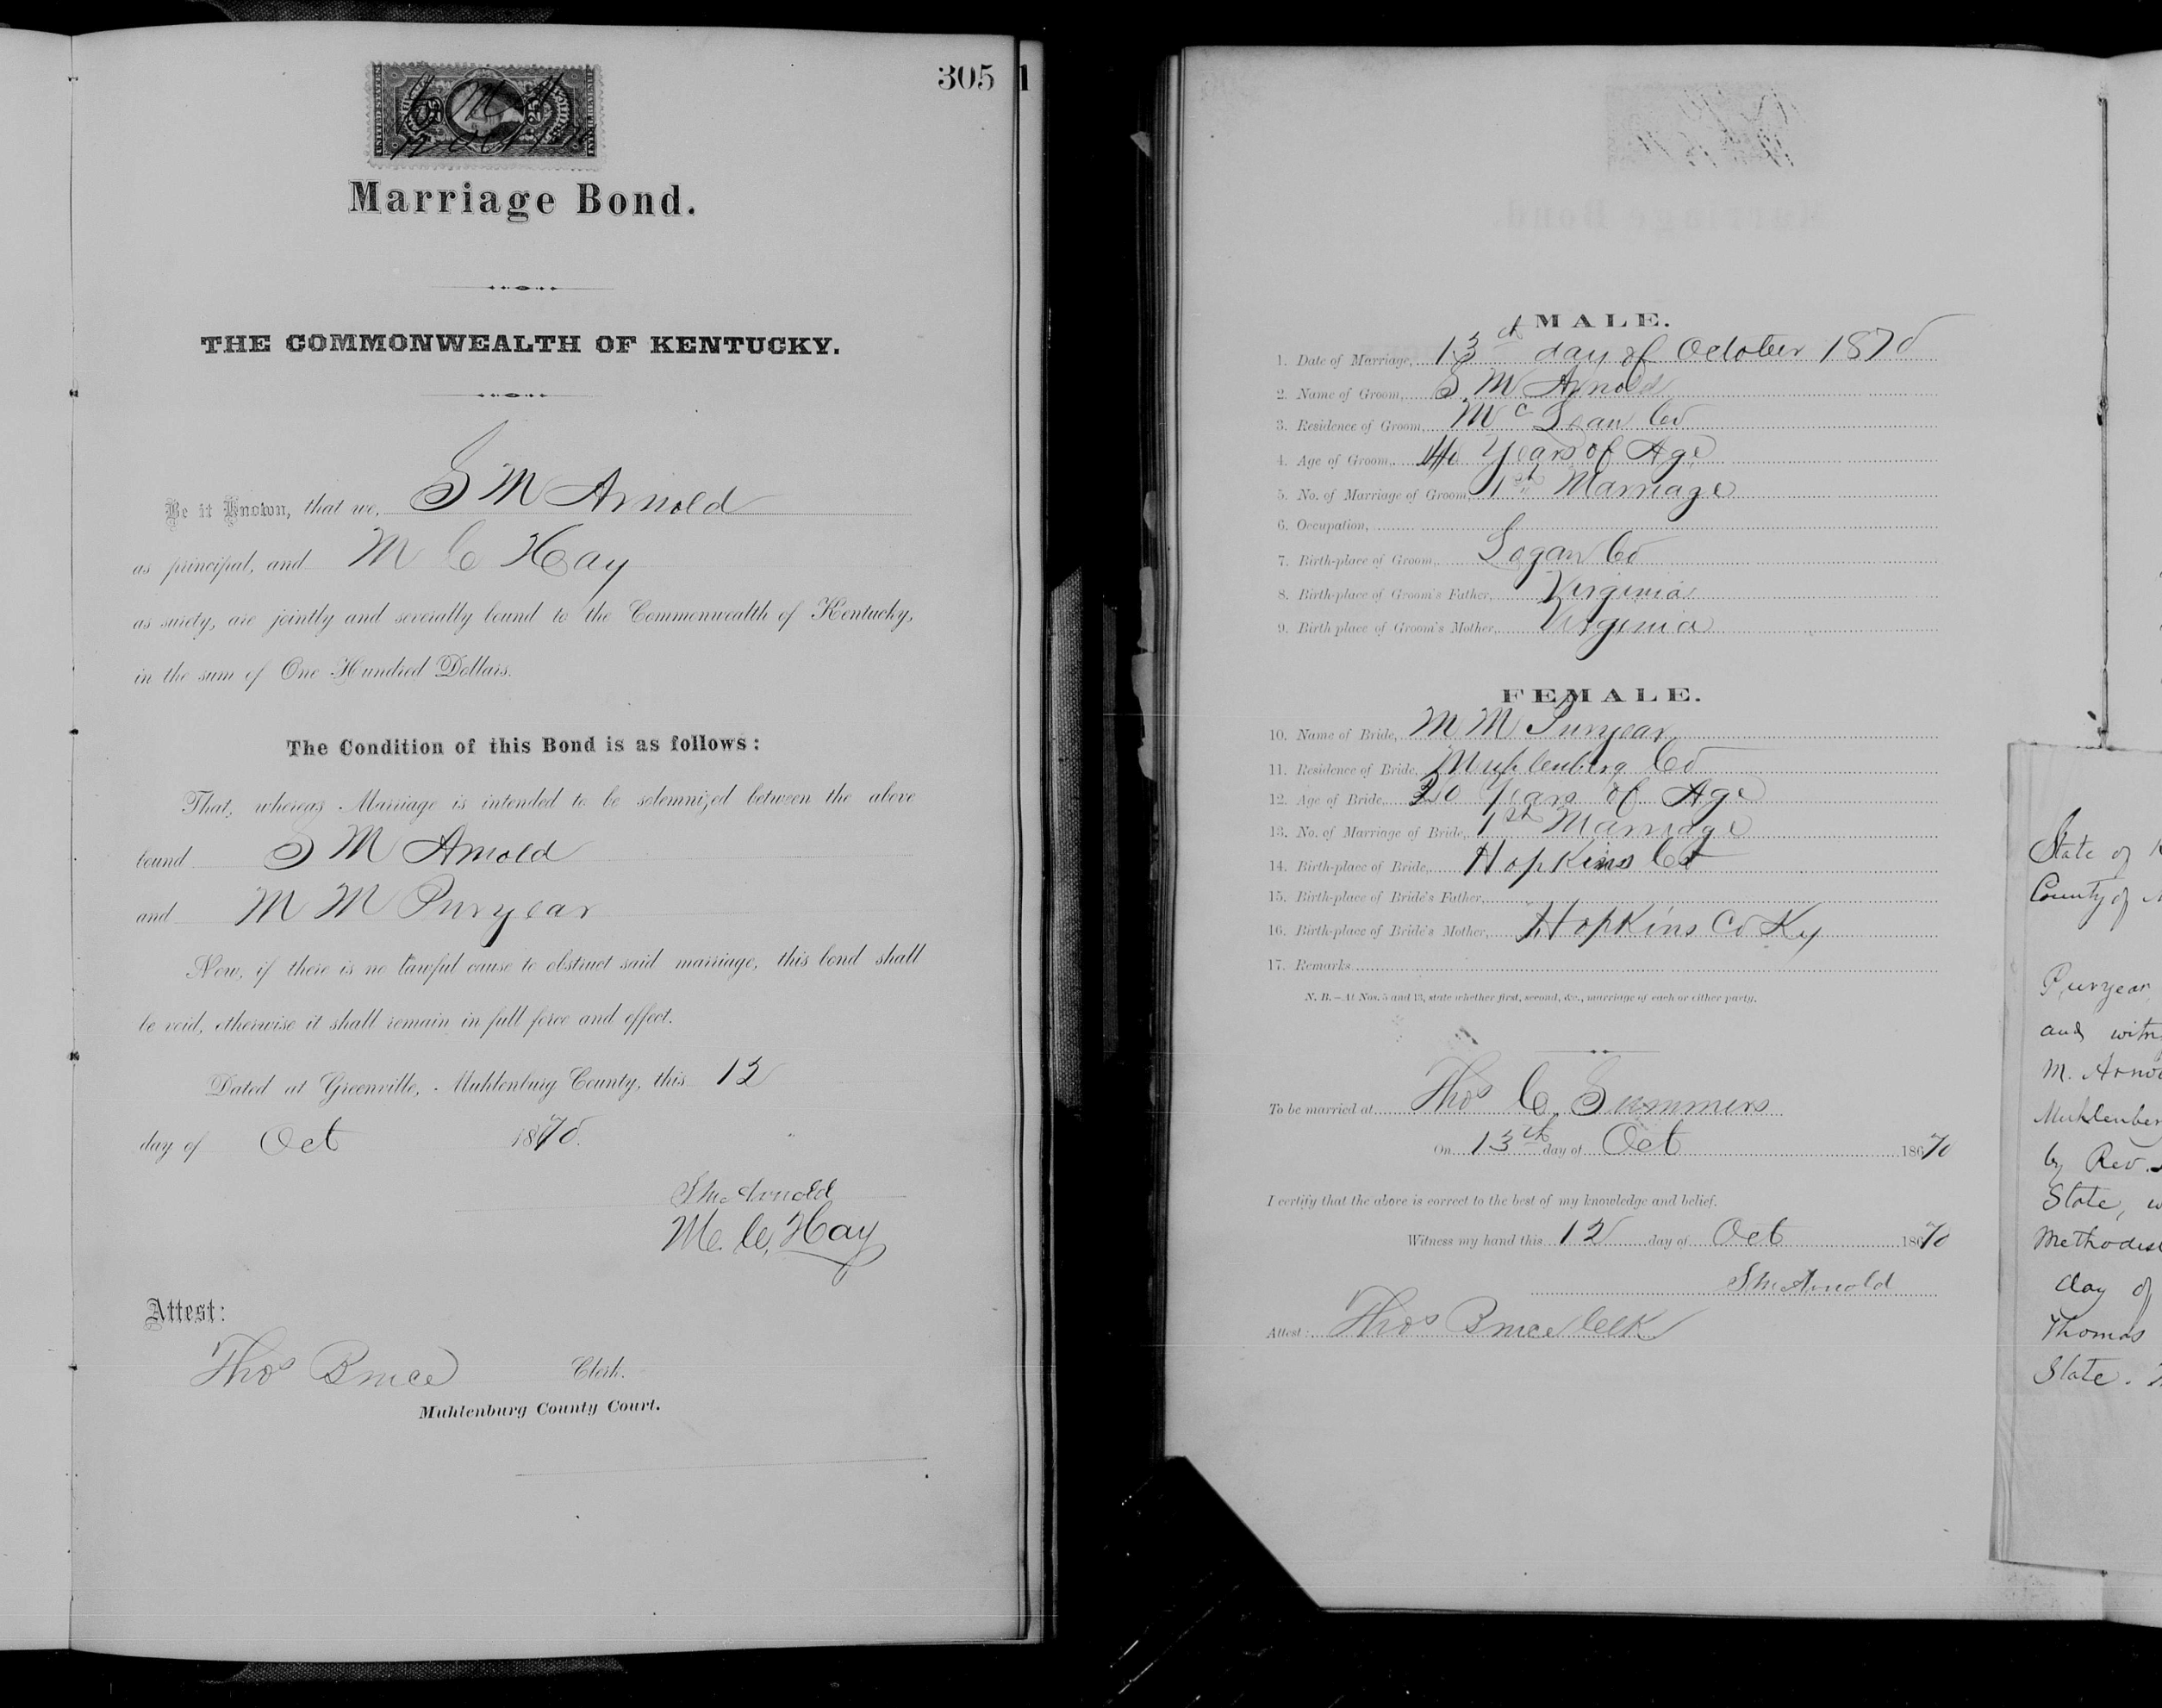 305
Marriage Bond.
THE COMMONWEALTH OF KENTUCKY.
Be it Known, that we, S M Arnold
as principal, and M C Hay
as surety, are jointly and severally bound to the Commonwealth of Kentucky,
in the sum of One Hundred Dollars.
The Condition of this Bond is as follows:
That, whereas Marriage is intended to be solemnized between the above
bound S M Arnold
and M M Puryear
Now, if there is no lawful cause to obstruct said marriage, this bond shall
be void, otherwise it shall remain in full force and effect.
Dated at Greenville, Muhlenburg County, this 12
day of Oct 1870.
S M Arnold
M. C. Hay
Attest:
Thos Bruce Clerk.
Muhlenburg County Court.
1
MALE.
1. Date of Marriage, 13th day of October 1870
2. Name of Groom, S M Arnold
3. Residence of Groom, Mc Lean Co
4. Age of Groom, Years of Age
5. No. of Marriage of Groom, 1st Marriage
6. Occupation,
7. Birth-place of Groom, Logan Co
8. Birth-place of Groom's Father, Virginia
9. Birth place of Groom's Mother, Virginia
FEMALE.
10. Name of Bride, M M Puryear
11. Residence of Bride, Muhlenberg Co
12. Age of Bride, Years of Age
13. No. of Marriage of Bride, 1st Marriage
14. Birth-place of Bride, Hopkins Co
15. Birth-place of Bride's Father,
16. Birth-place of Bride's Mother, Hopkins Co Ky
17. Remarks
N. B.—At Nos. 5 and 13, state whether first, second, &c., marriage of each or either party.
To be married at Thos C. Summers
On 13th day of Oct 1870
I certify that the above is correct to the best of my knowledge and belief.
Witness my hand this 12 day of Oct 1870
S M Arnold
Attest: Thos Bruce Clk
State of
County of
Puryear
and
M.
by Rev.
State,
day of
Thomas
State.